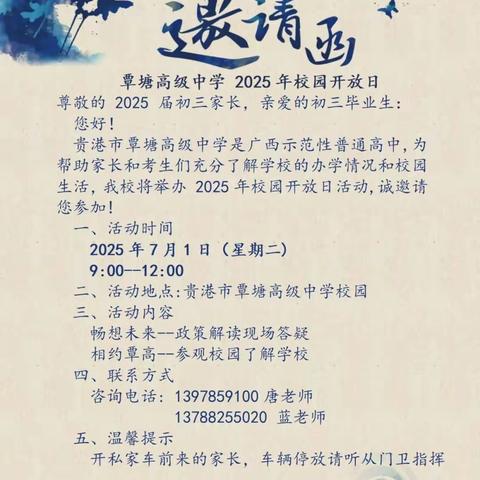 邀请函
覃塘高级中学 2025 年校园开放日
尊敬的 2025 届初三家长，亲爱的初三毕业生：
您好！
贵港市覃塘高级中学是广西示范性普通高中，为
帮助家长和考生们充分了解学校的办学情况和校园
生活，我校将举办 2025 年校园开放日活动，诚邀请
您参加！
一、活动时间
2025 年 7 月 1 日（星期二）
9:00--12:00
二、活动地点：贵港市覃塘高级中学校园
三、活动内容
畅想未来--政策解读现场答疑
相约覃高--参观校园了解学校
四、联系方式
咨询电话：1397859100 唐老师
13788255020 蓝老师
五、温馨提示
开私家车前来的家长，车辆停放请听从门卫指挥